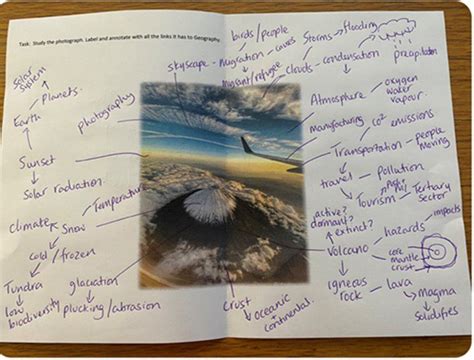 Task: Study the photograph. Label and annotate with all the links it has to Geography.
birds/people
Storms
flooding
skyscape
Migration
Migrant/refugee
clouds
condensation
precipitation
Solar system
Planets
Earth
photography
Atmosphere
oxygen
water vapour
manufacturing
CO²
emissions
Transportation
People Moving
Sunset
Solar radiation
travel
Pollution
Tourism
Tertiary Sector
Temperature
climate
Snow
active?
dormant?
extinct?
hazards
impacts
Volcano
core
mantle
crust
cold/frozen
Tundra
low biodiversity
glaciation
plucking/abrasion
crust
oceanic
continental
igneous rock
lava
magma
solidifies